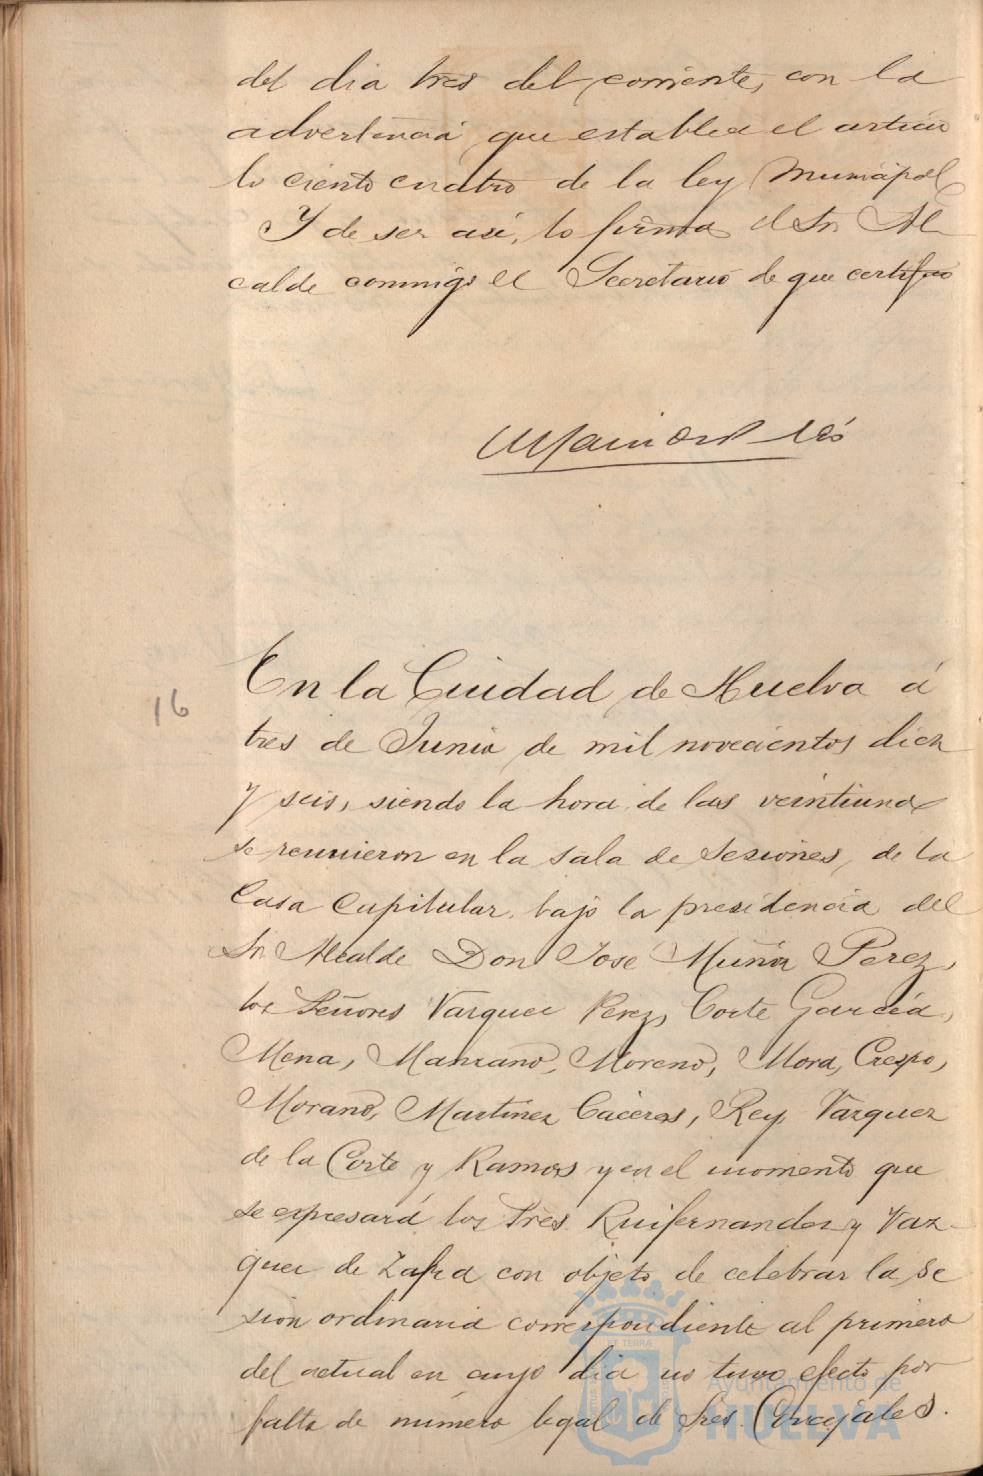 del dia tres del corriente, con la
advertencia que establece el articu
lo ciento cuatro de la ley Municipal
Y de ser así, lo firma el Sr. Al
calde conmigo el Secretario de que certifico
16
En la Ciudad de Huelva á
tres de Junio de mil novecientos diez
y seis, siendo la hora de las veintiuna
se reunieron en la sala de Sesiones, de la
Casa Capitular, bajo la presidencia del
Sr. Alcalde Don José Muñiz Perez,
los Señores Vazquez Perez, Corte García,
Mena, Manzano, Moreno, Mora, Crespo,
Morano, Martinez Cáceres, Rey, Vazquez
de la Corte y Ramos y en el momento que
se expresará los Sres. Ruifernandez y Vaz-
quez de Zafra con objeto de celebrar la se
sion ordinaria correspondiente al primero
del actual en cuyo dia no tuvo efecto por
falta de número legal de Sres. Concejales.
Ayuntamiento de
HUELVA